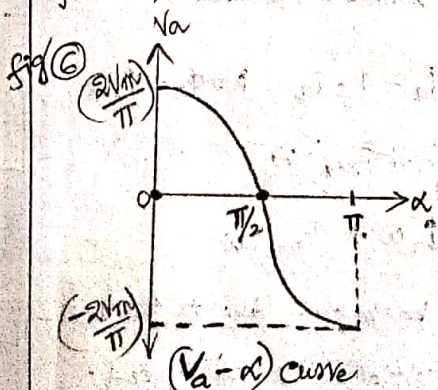 Va
fig ⑥
(2Vm/π)
0
π/2
π
α
(-2Vm/π)
(Va - α) curve